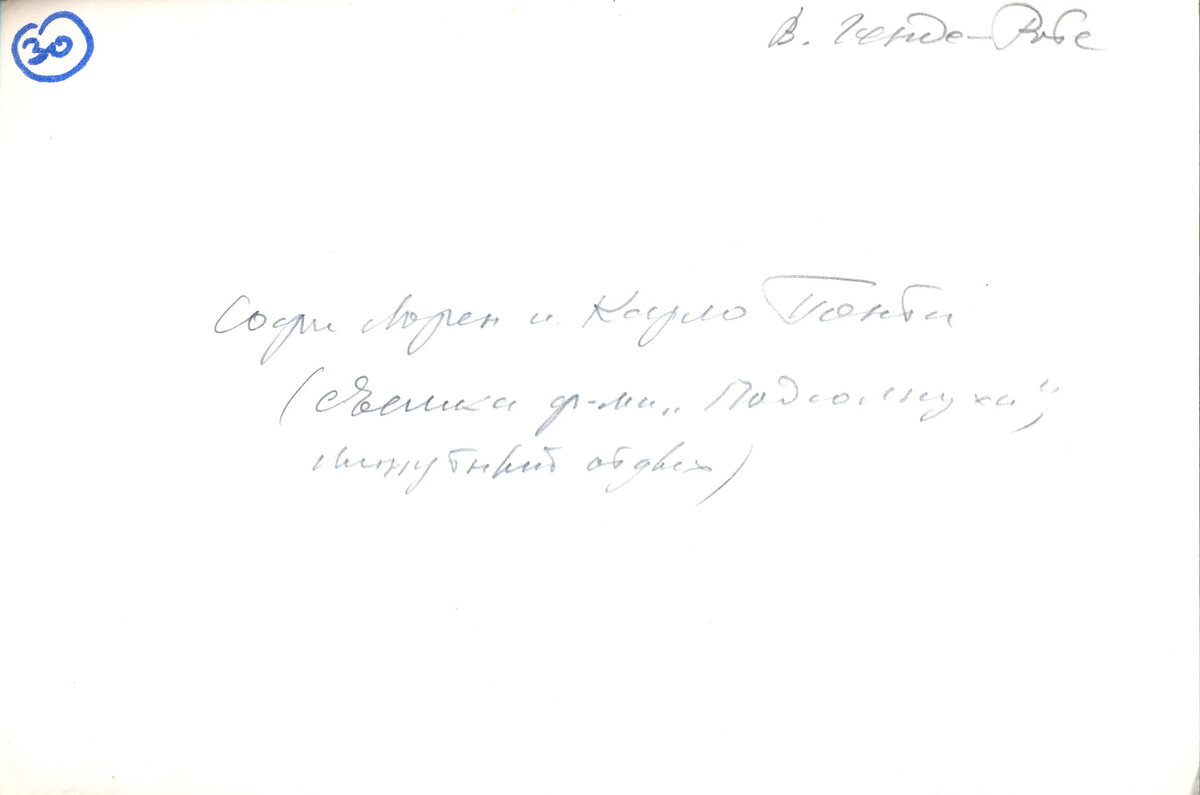 30
В. Генде-Роте
Софи Лорен и Карло Понти
(съемки ф-ма „Подсолнухи“,
минутный отдых)